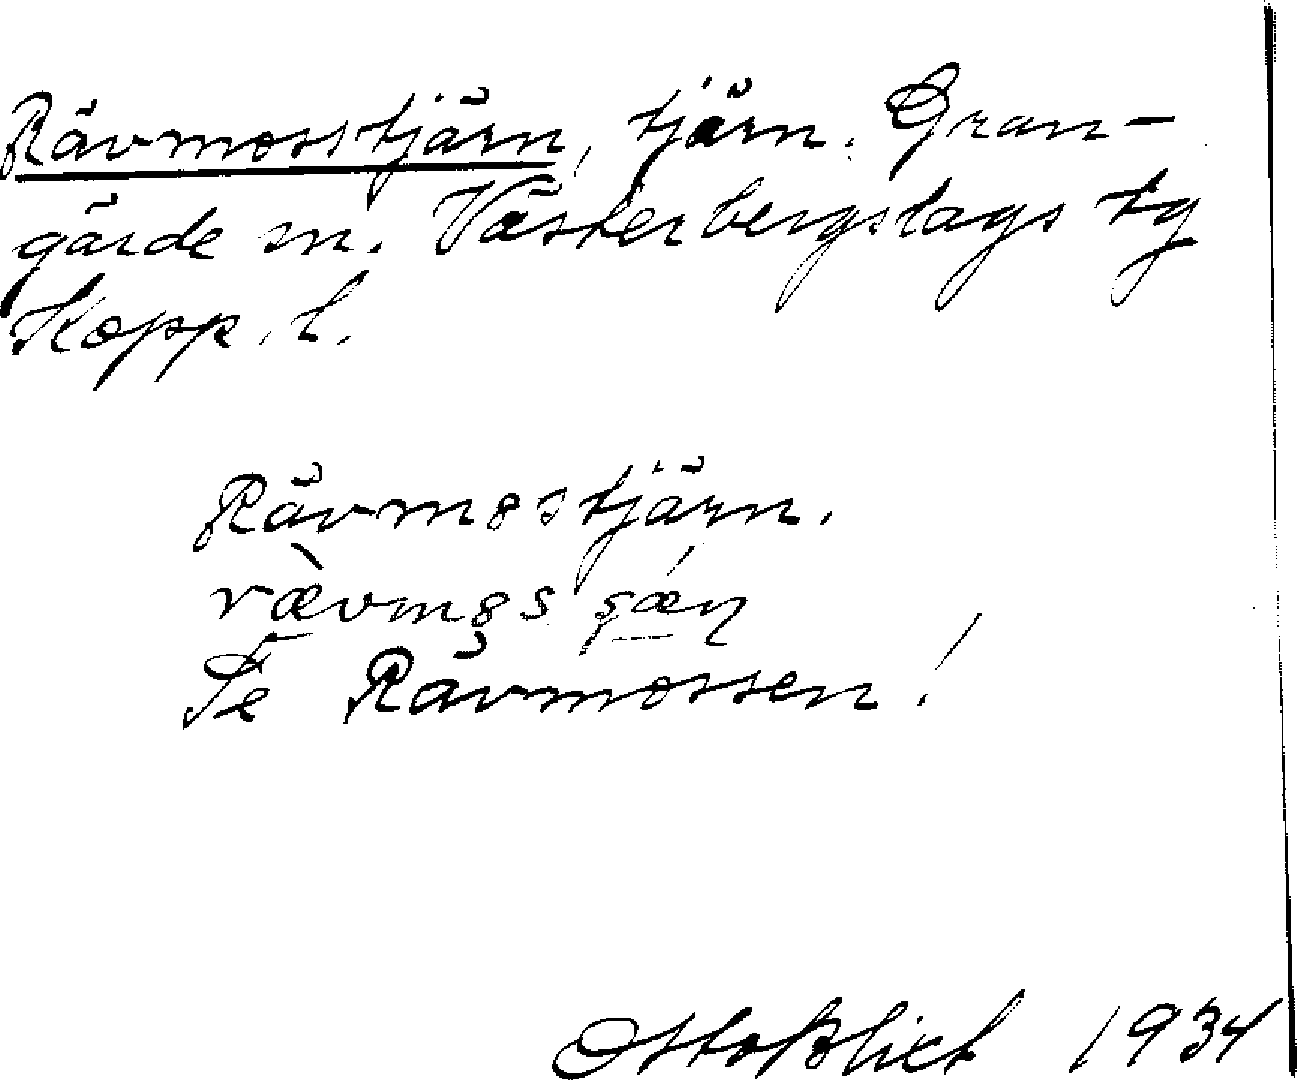 Rävmosstjärn, tjärn. Gran-
gärde sn. Västerbergslags tg
Kopp. l.
Rävmosstjärn.
rævmɷs
Se Rävmossen!
Otto Blixt 1934